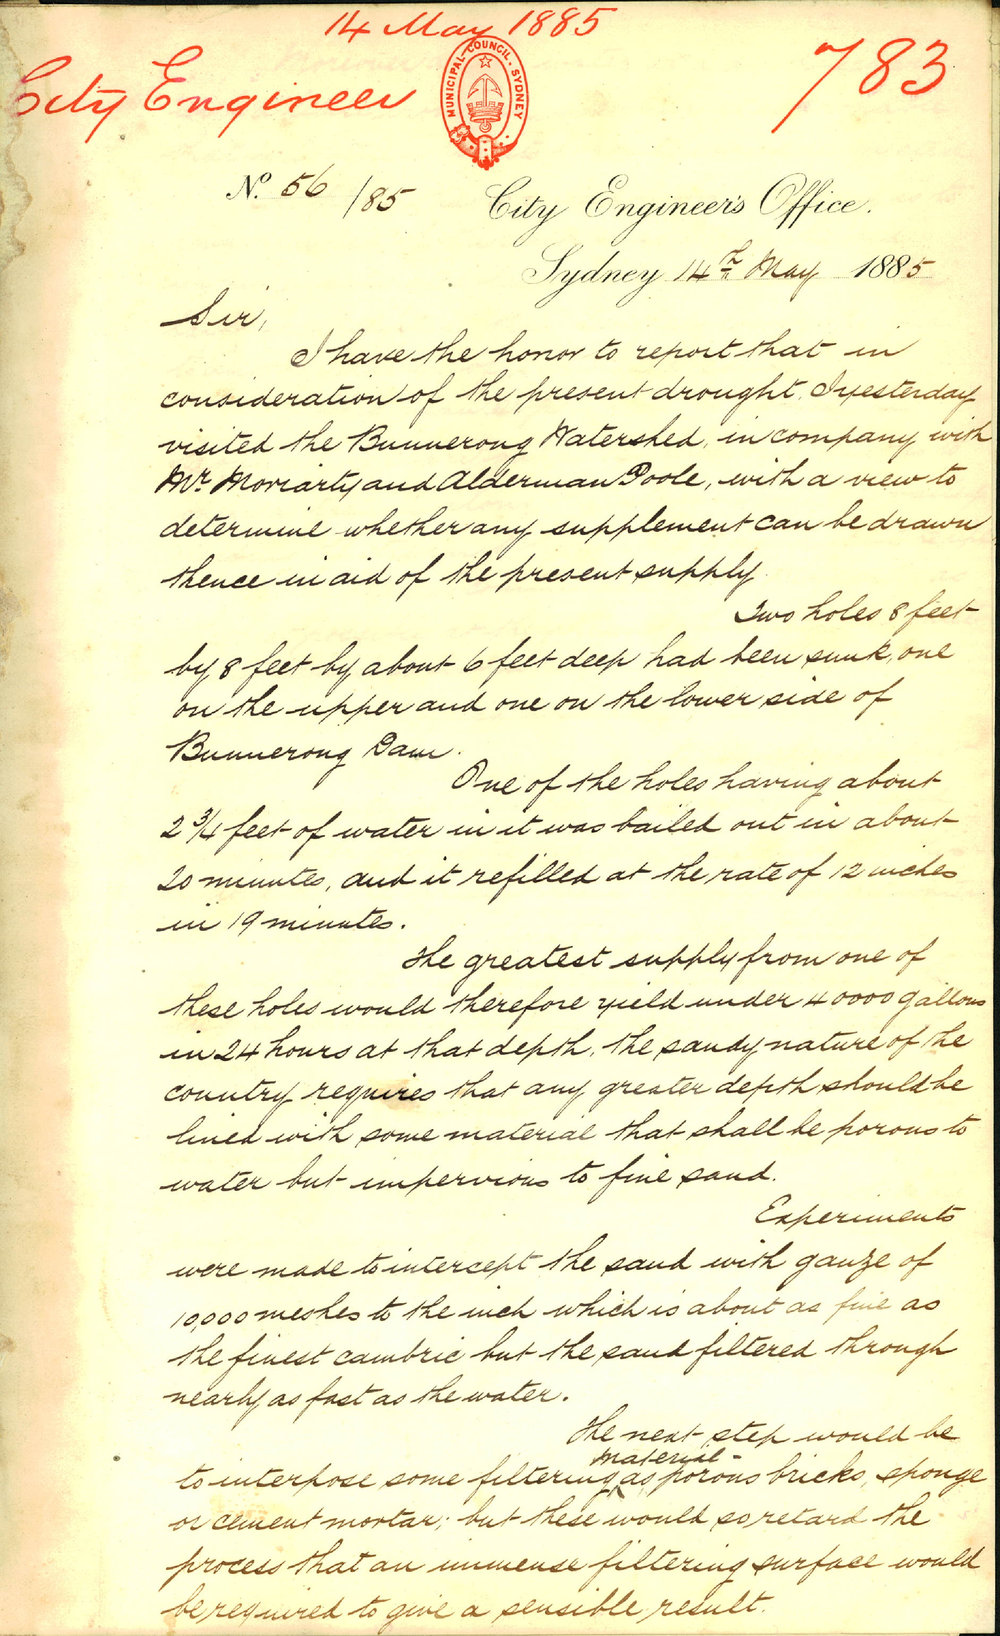 14 May 1885
City Engineer
783
MUNICIPAL COUNCIL SYDNEY
No. 56/85 City Engineer's Office.
Sydney 14th May 1885
Sir,
I have the honor to report that in
consideration of the present drought I yesterday
visited the Bunnerong Watershed, in company with
Mr. Moriarty and Alderman Poole, with a view to
determine whether any supplement can be drawn
thence in aid of the present supply.
Two holes 8 feet
by 8 feet by about 6 feet deep had been sunk, one
on the upper and one on the lower side of
Bunnerong Dam.
One of the holes having about
2 3/4 feet of water in it was bailed out in about
20 minutes, and it refilled at the rate of 12 inches
in 19 minutes.
The greatest supply from one of
these holes would therefore yield under 40000 gallons
in 24 hours at that depth, the sandy nature of the
country requires that any greater depth should be
lined with some material that shall be porous to
water but impervious to fine sand.
Experiments
were made to intercept the sand with gauze of
10,000 meshes to the inch which is about as fine as
the finest cambric but the sand filtered through
nearly as fast as the water.
The next step would be
to interpose some filtering material as porous bricks, sponge
or cement mortar; but these would so retard the
process that an immense filtering surface would
be required to give a sensible result.